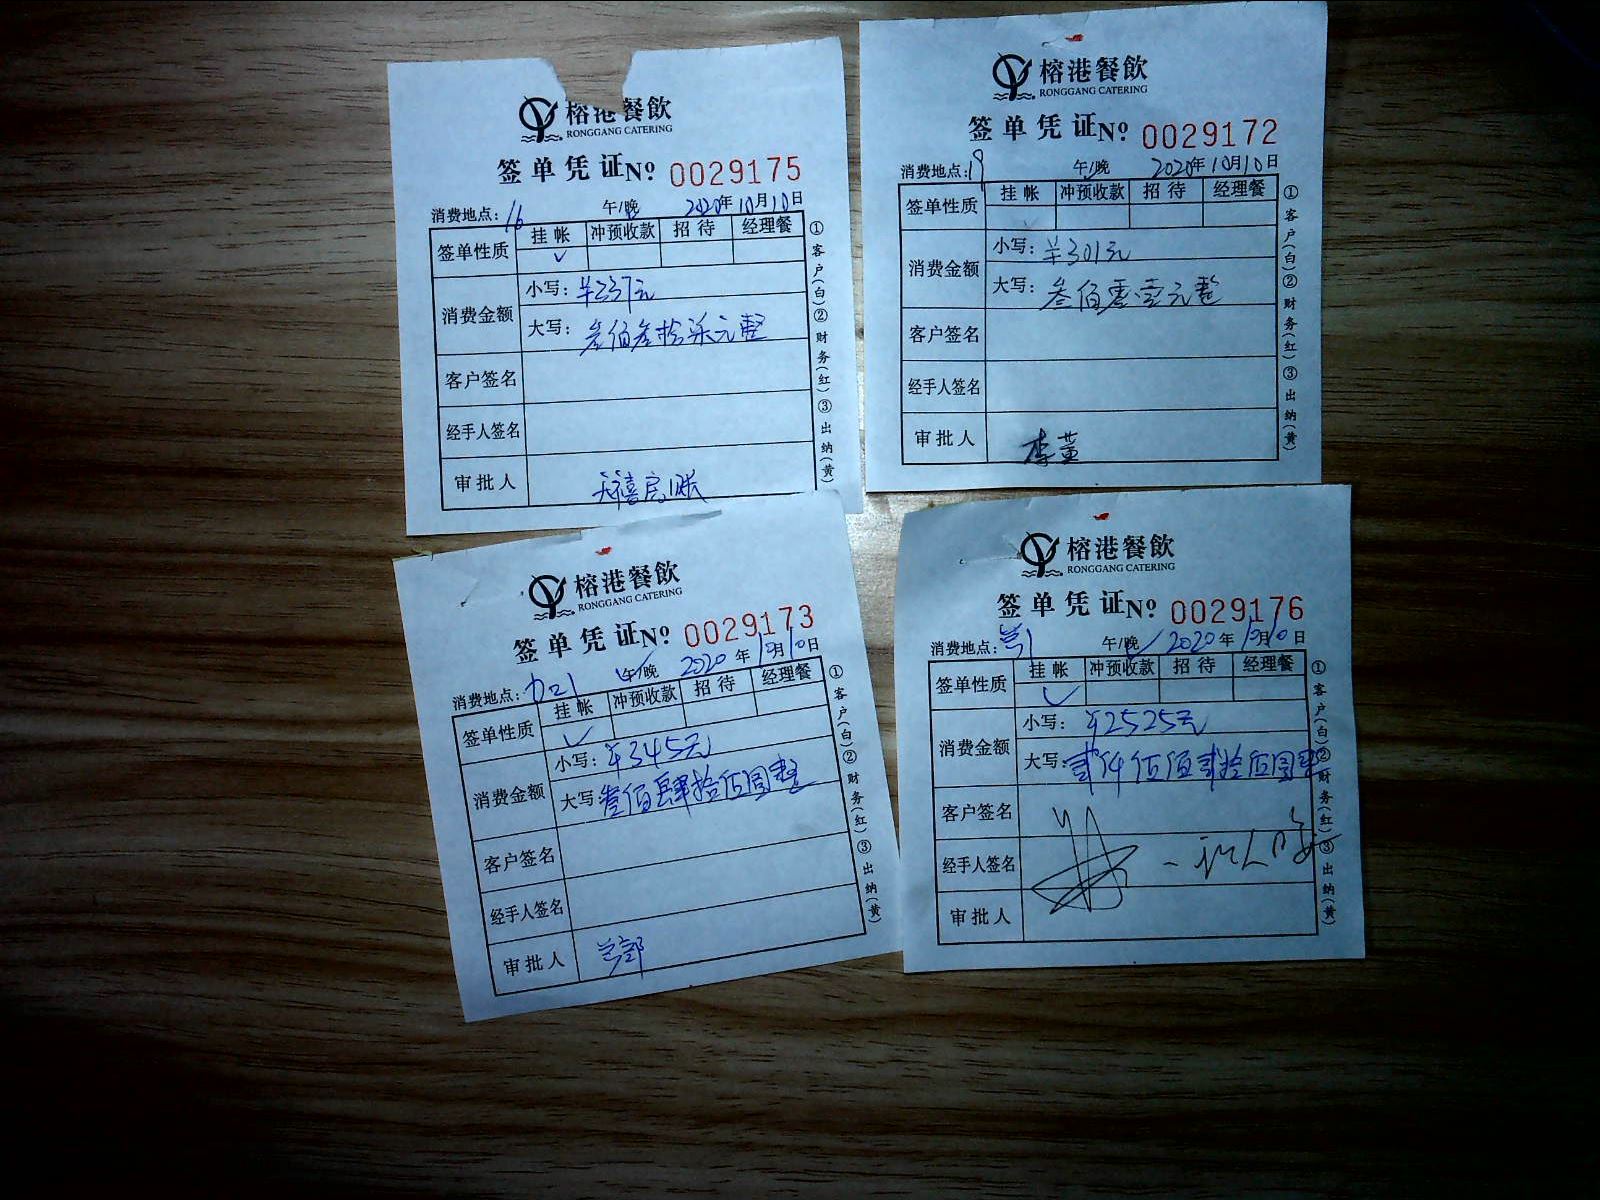 榕港餐飲
RONGGANG CATERING
签单凭证No 0029175
消费地点: 16 午/晚 2020年10月10日
签单性质 挂帐 冲预收款 招待 经理餐
✓
消费金额 小写: ¥337元
大写: 叁佰叁拾柒元整
客户签名
经手人签名
审批人 天禧房账
①客户(白)②财务(红)③出纳(黄)
榕港餐飲
RONGGANG CATERING
签单凭证No 0029172
消费地点: 19 午/晚 2020年10月10日
签单性质 挂帐 冲预收款 招待 经理餐
消费金额 小写: ¥301元
大写: 叁佰零壹元整
客户签名
经手人签名
审批人 李董
①客户(白)②财务(红)③出纳(黄)
榕港餐飲
RONGGANG CATERING
签单凭证No 0029173
消费地点: 午/晚 2020年10月10日
签单性质 挂帐 冲预收款 招待 经理餐
✓
消费金额 小写: ¥345元
大写: 叁佰肆拾伍圆整
客户签名
经手人签名
审批人
①客户(白)②财务(红)③出纳(黄)
榕港餐飲
RONGGANG CATERING
签单凭证No 0029176
消费地点: 午/晚 2020年10月10日
签单性质 挂帐 冲预收款 招待 经理餐
✓
消费金额 小写: ¥2525元
大写: 贰仟伍佰贰拾伍圆整
客户签名
经手人签名
审批人
①客户(白)②财务(红)③出纳(黄)